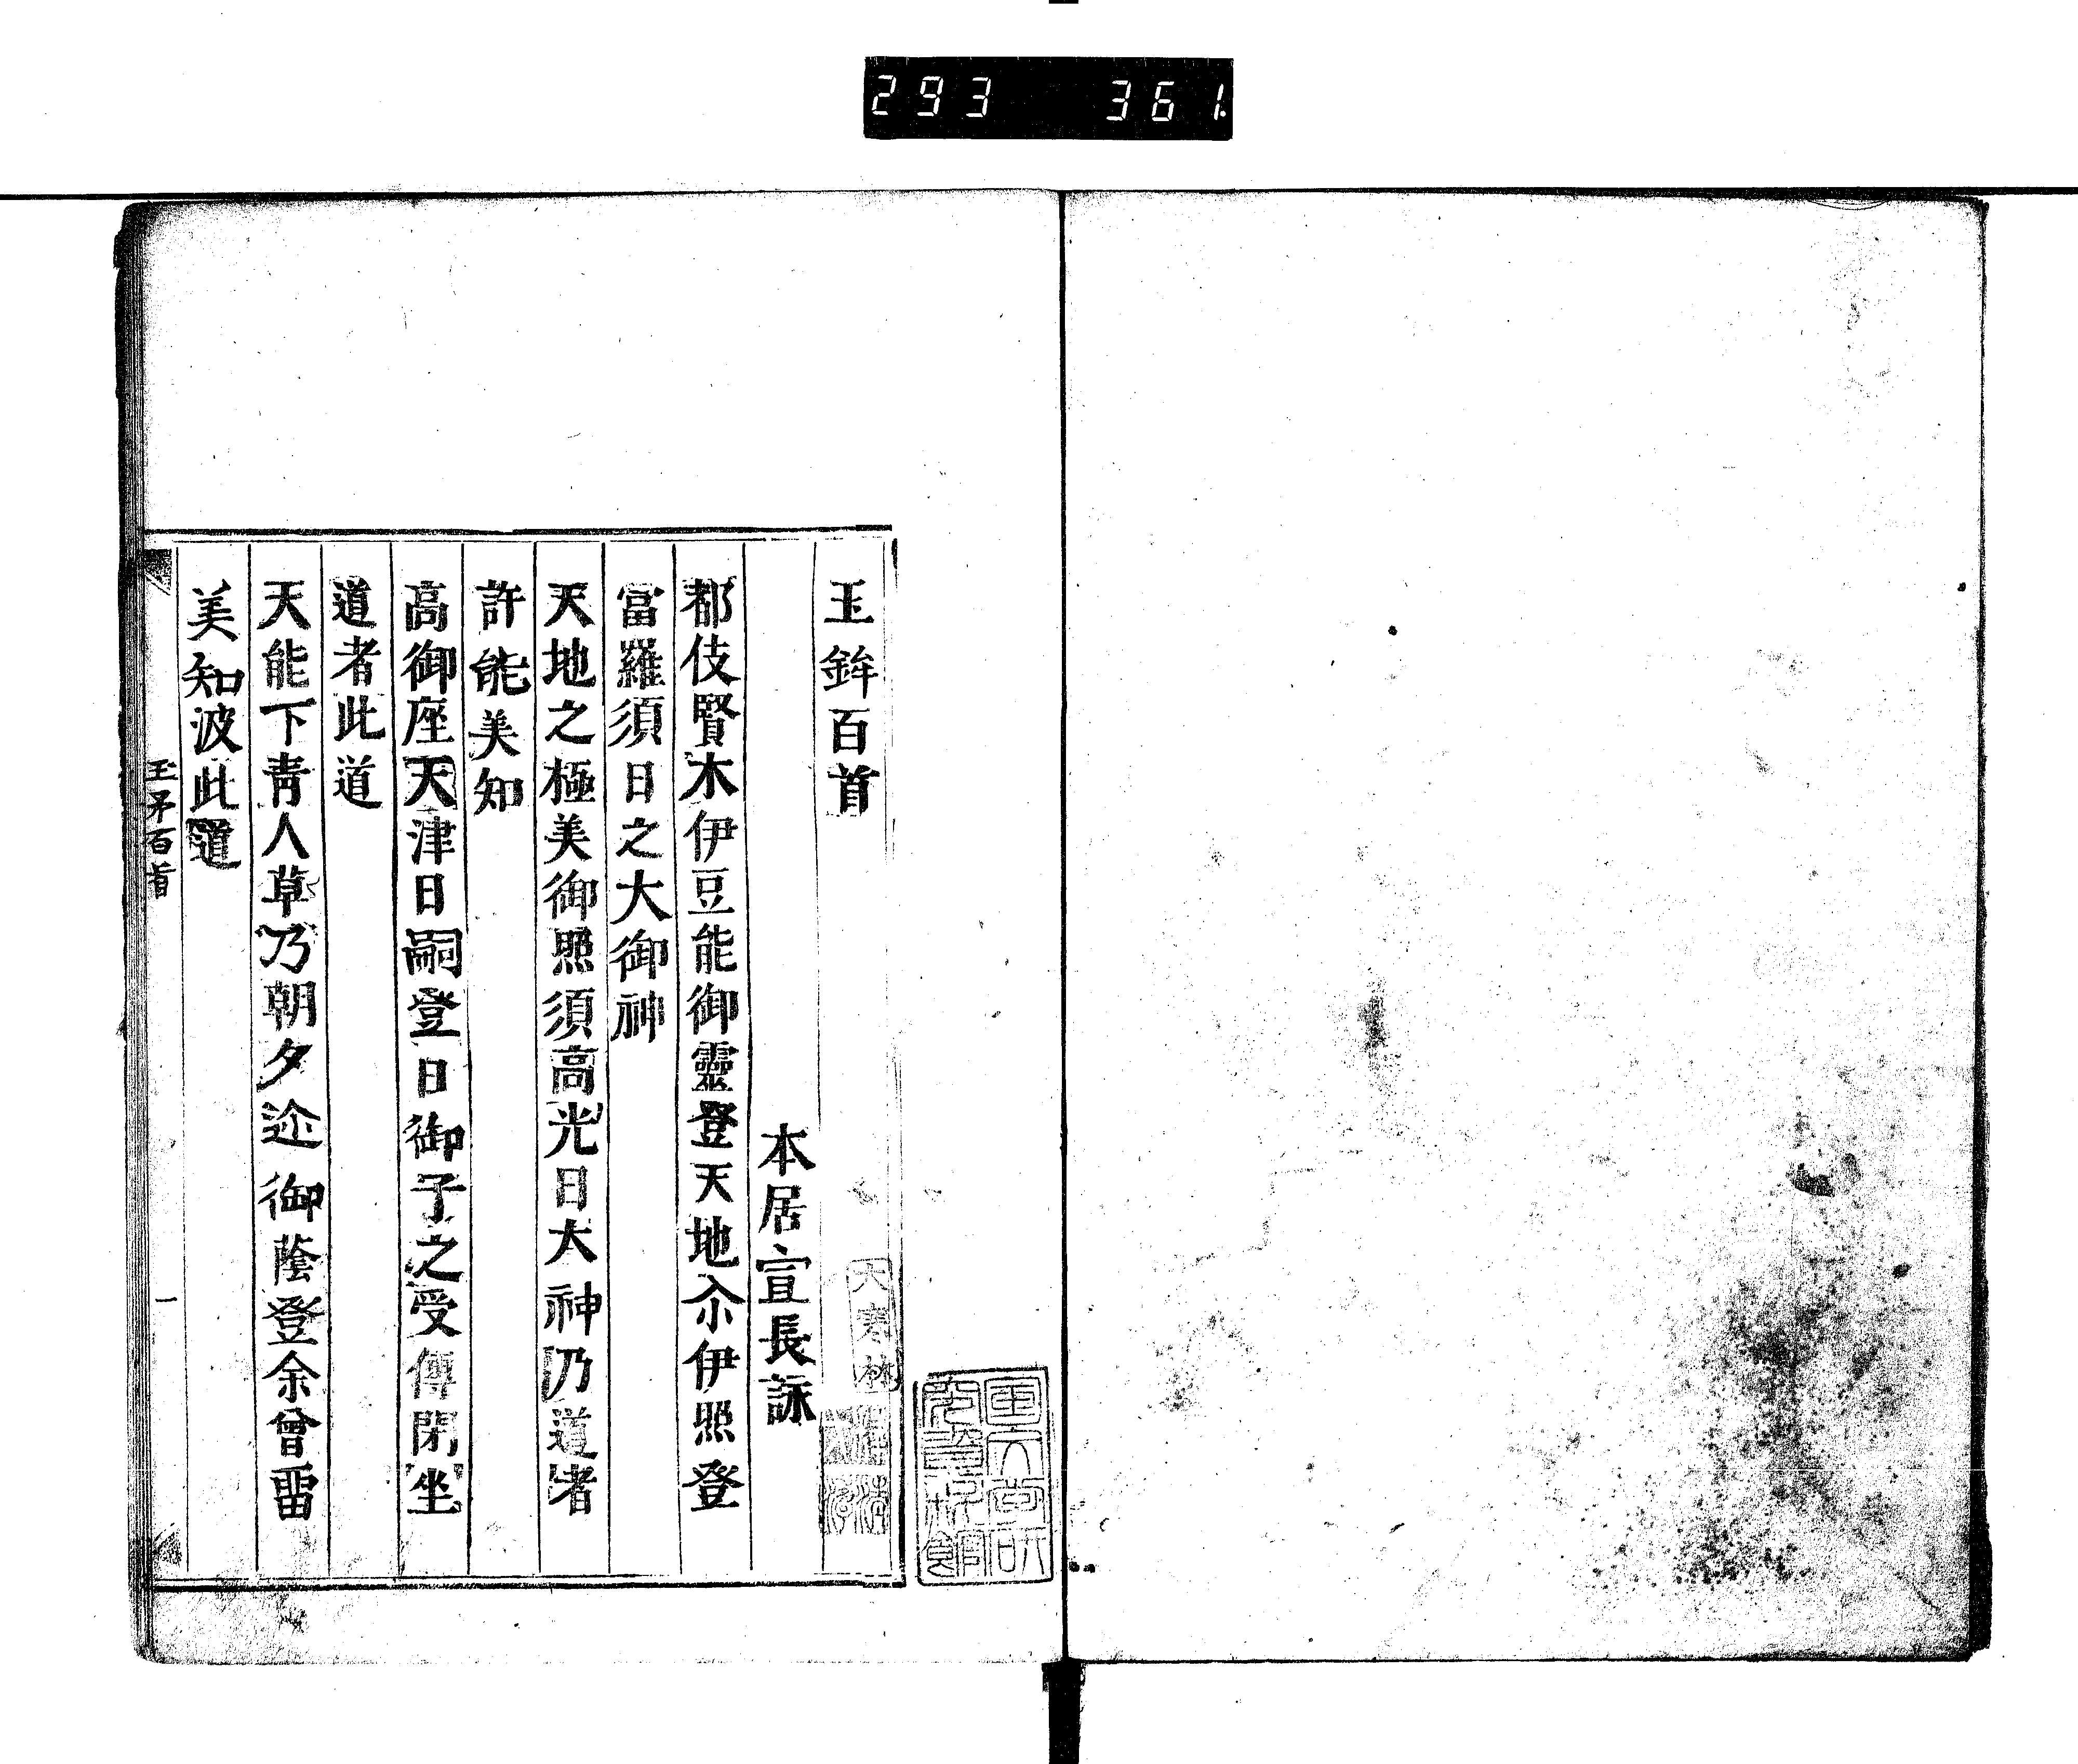 293 361
玉鉾百首
本居宣長詠
都伎賢木伊豆能御靈登天地尒伊照登
富羅須日之大御神
天地之極美御照須高光日大神乃道者
許能美知
高御座天津日嗣登日御子之受傳閇坐
道者此道
天能下青人草乃朝夕迩御蔭登余曾畱
美知波此道
玉矛百首
一
天寒林